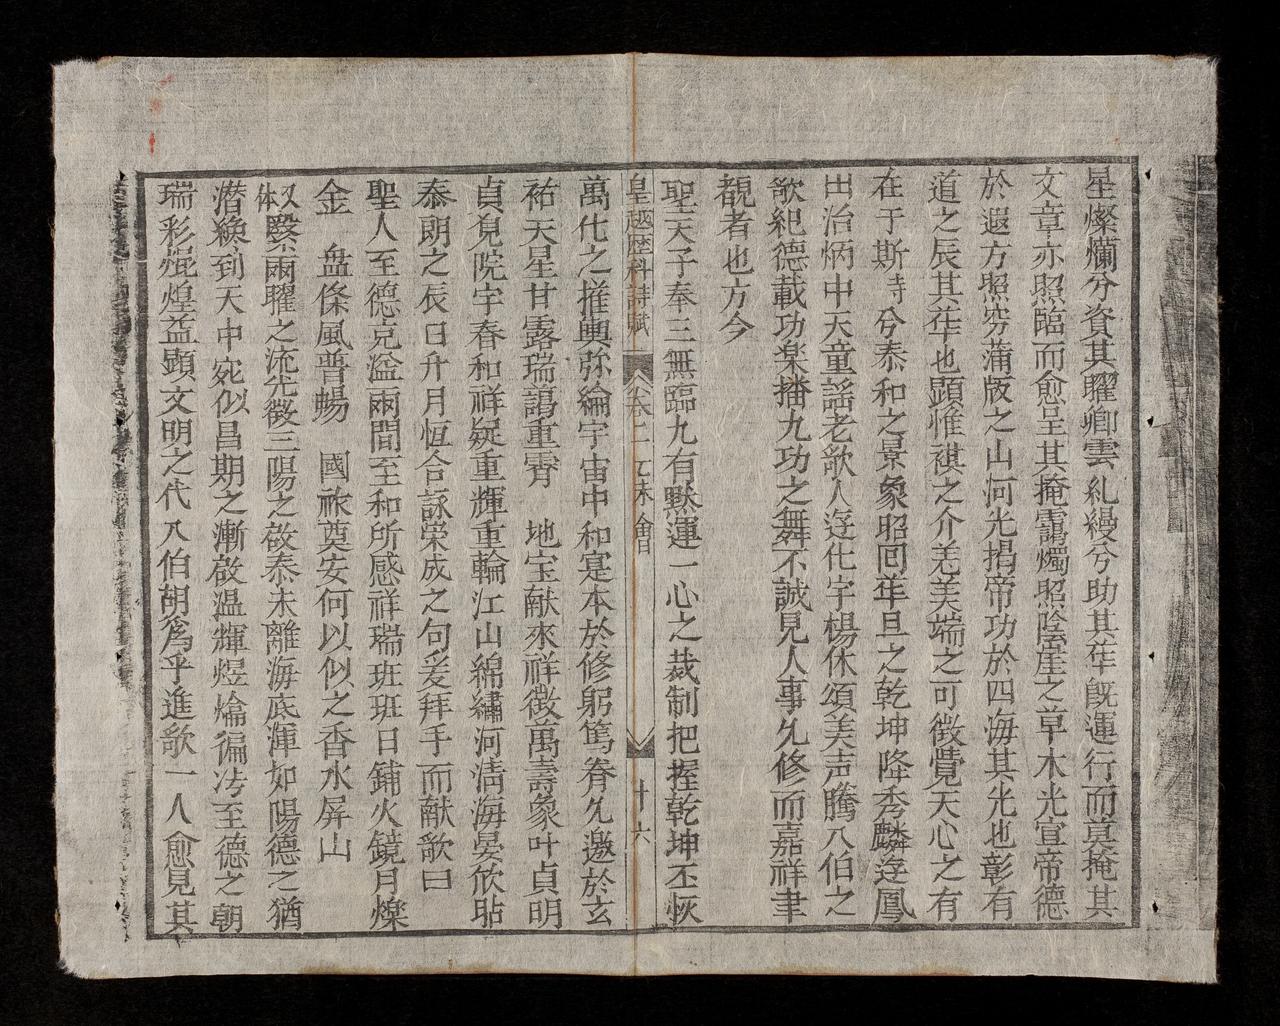 星燦爛分資其曜卿雲糺縵兮助其年旣運行而莫掩其
文章亦照臨而愈呈其掩靄燭照陰崖之草木光宣帝德
於遐方照穷蒲版之山河光揭帝功於四海其光也彰有
道之辰其年也顯惟祺之介羌美端之可徵覺天心之有
在于斯時兮泰和之景象昭回年旦之乾坤降秀麟逰鳳
出治炳中天童謡老歌人逰化宇楊休頌美声騰八伯之
歌紀德載功楽播九功之舞不誠見人事乆修而嘉祥聿
覩者也方今
聖天子奉三無臨九有默運一心之裁制把握乾坤丕恢
皇越歴科詩賦 卷二 乙未會 十六
萬化之摧輿弥綸宇宙中和寔本於修躬篤眷乆邀於玄
祐天星甘露瑞藹重霽 地宝献來祥徴萬壽象叶貞明
貞覓院宇春和祥疑重輝重輪江山綿繡河清海晏欣貼
泰朗之辰日升月恆合詠荣成之句爰拜手而献歌曰
聖人至德克溢兩間至和所感祥瑞班班日鋪火鏡月燦
金 盘條風普暢 國祚奠安何以似之香水屏山
又体 翳翕兩曜之流光徵三陽之啟泰未離海底渾如陽德之猶
潜纔到天中宛似昌期之漸啟温輝煜爚徧冸至德之朝
瑞彩焜煌益顕文明之代八伯胡為乎進歌一人愈見其